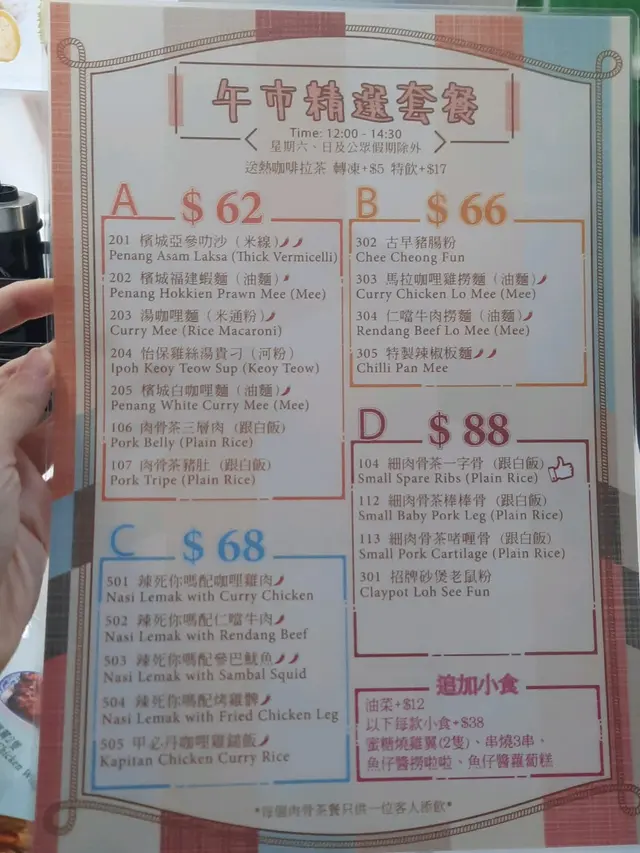 午市精選套餐
Time: 12:00 - 14:30
星期六、日及公眾假期除外
送熱咖啡拉茶 轉凍+$5 特飲+$17
A $ 62
201 檳城亞參叻沙（米線）
Penang Asam Laksa (Thick Vermicelli)
202 檳城福建蝦麵（油麵）
Penang Hokkien Prawn Mee (Mee)
203 湯咖哩麵（米通粉）
Curry Mee (Rice Macaroni)
204 怡保雞絲湯貴刁（河粉）
Ipoh Keoy Teow Sup (Keoy Teow)
205 檳城白咖哩麵（油麵）
Penang White Curry Mee (Mee)
106 肉骨茶三層肉（跟白飯）
Pork Belly (Plain Rice)
107 肉骨茶豬肚（跟白飯）
Pork Tripe (Plain Rice)
B $ 66
302 古早豬腸粉
Chee Cheong Fun
303 馬拉咖哩雞撈麵（油麵）
Curry Chicken Lo Mee (Mee)
304 仁噹牛肉撈麵（油麵）
Rendang Beef Lo Mee (Mee)
305 特製辣椒板麵
Chilli Pan Mee
C $ 68
501 辣死你嗎配咖哩雞肉
Nasi Lemak with Curry Chicken
502 辣死你嗎配仁噹牛肉
Nasi Lemak with Rendang Beef
503 辣死你嗎配參巴魷魚
Nasi Lemak with Sambal Squid
504 辣死你嗎配烤雞髀
Nasi Lemak with Fried Chicken Leg
505 甲必丹咖哩雞鎚飯
Kapitan Chicken Curry Rice
D $ 88
104 細肉骨茶一字骨（跟白飯）
Small Spare Ribs (Plain Rice)
112 細肉骨茶棒棒骨（跟白飯）
Small Baby Pork Leg (Plain Rice)
113 細肉骨茶啫喱骨（跟白飯）
Small Pork Cartilage (Plain Rice)
301 招牌砂煲老鼠粉
Claypot Loh See Fun
追加小食
油菜+$12
以下每款小食+$38
蜜糖燒雞翼(2隻)、串燒3串、
魚仔醬撈啦啦、魚仔醬蘿蔔糕
*每個肉骨茶餐只供一位客人添飲*